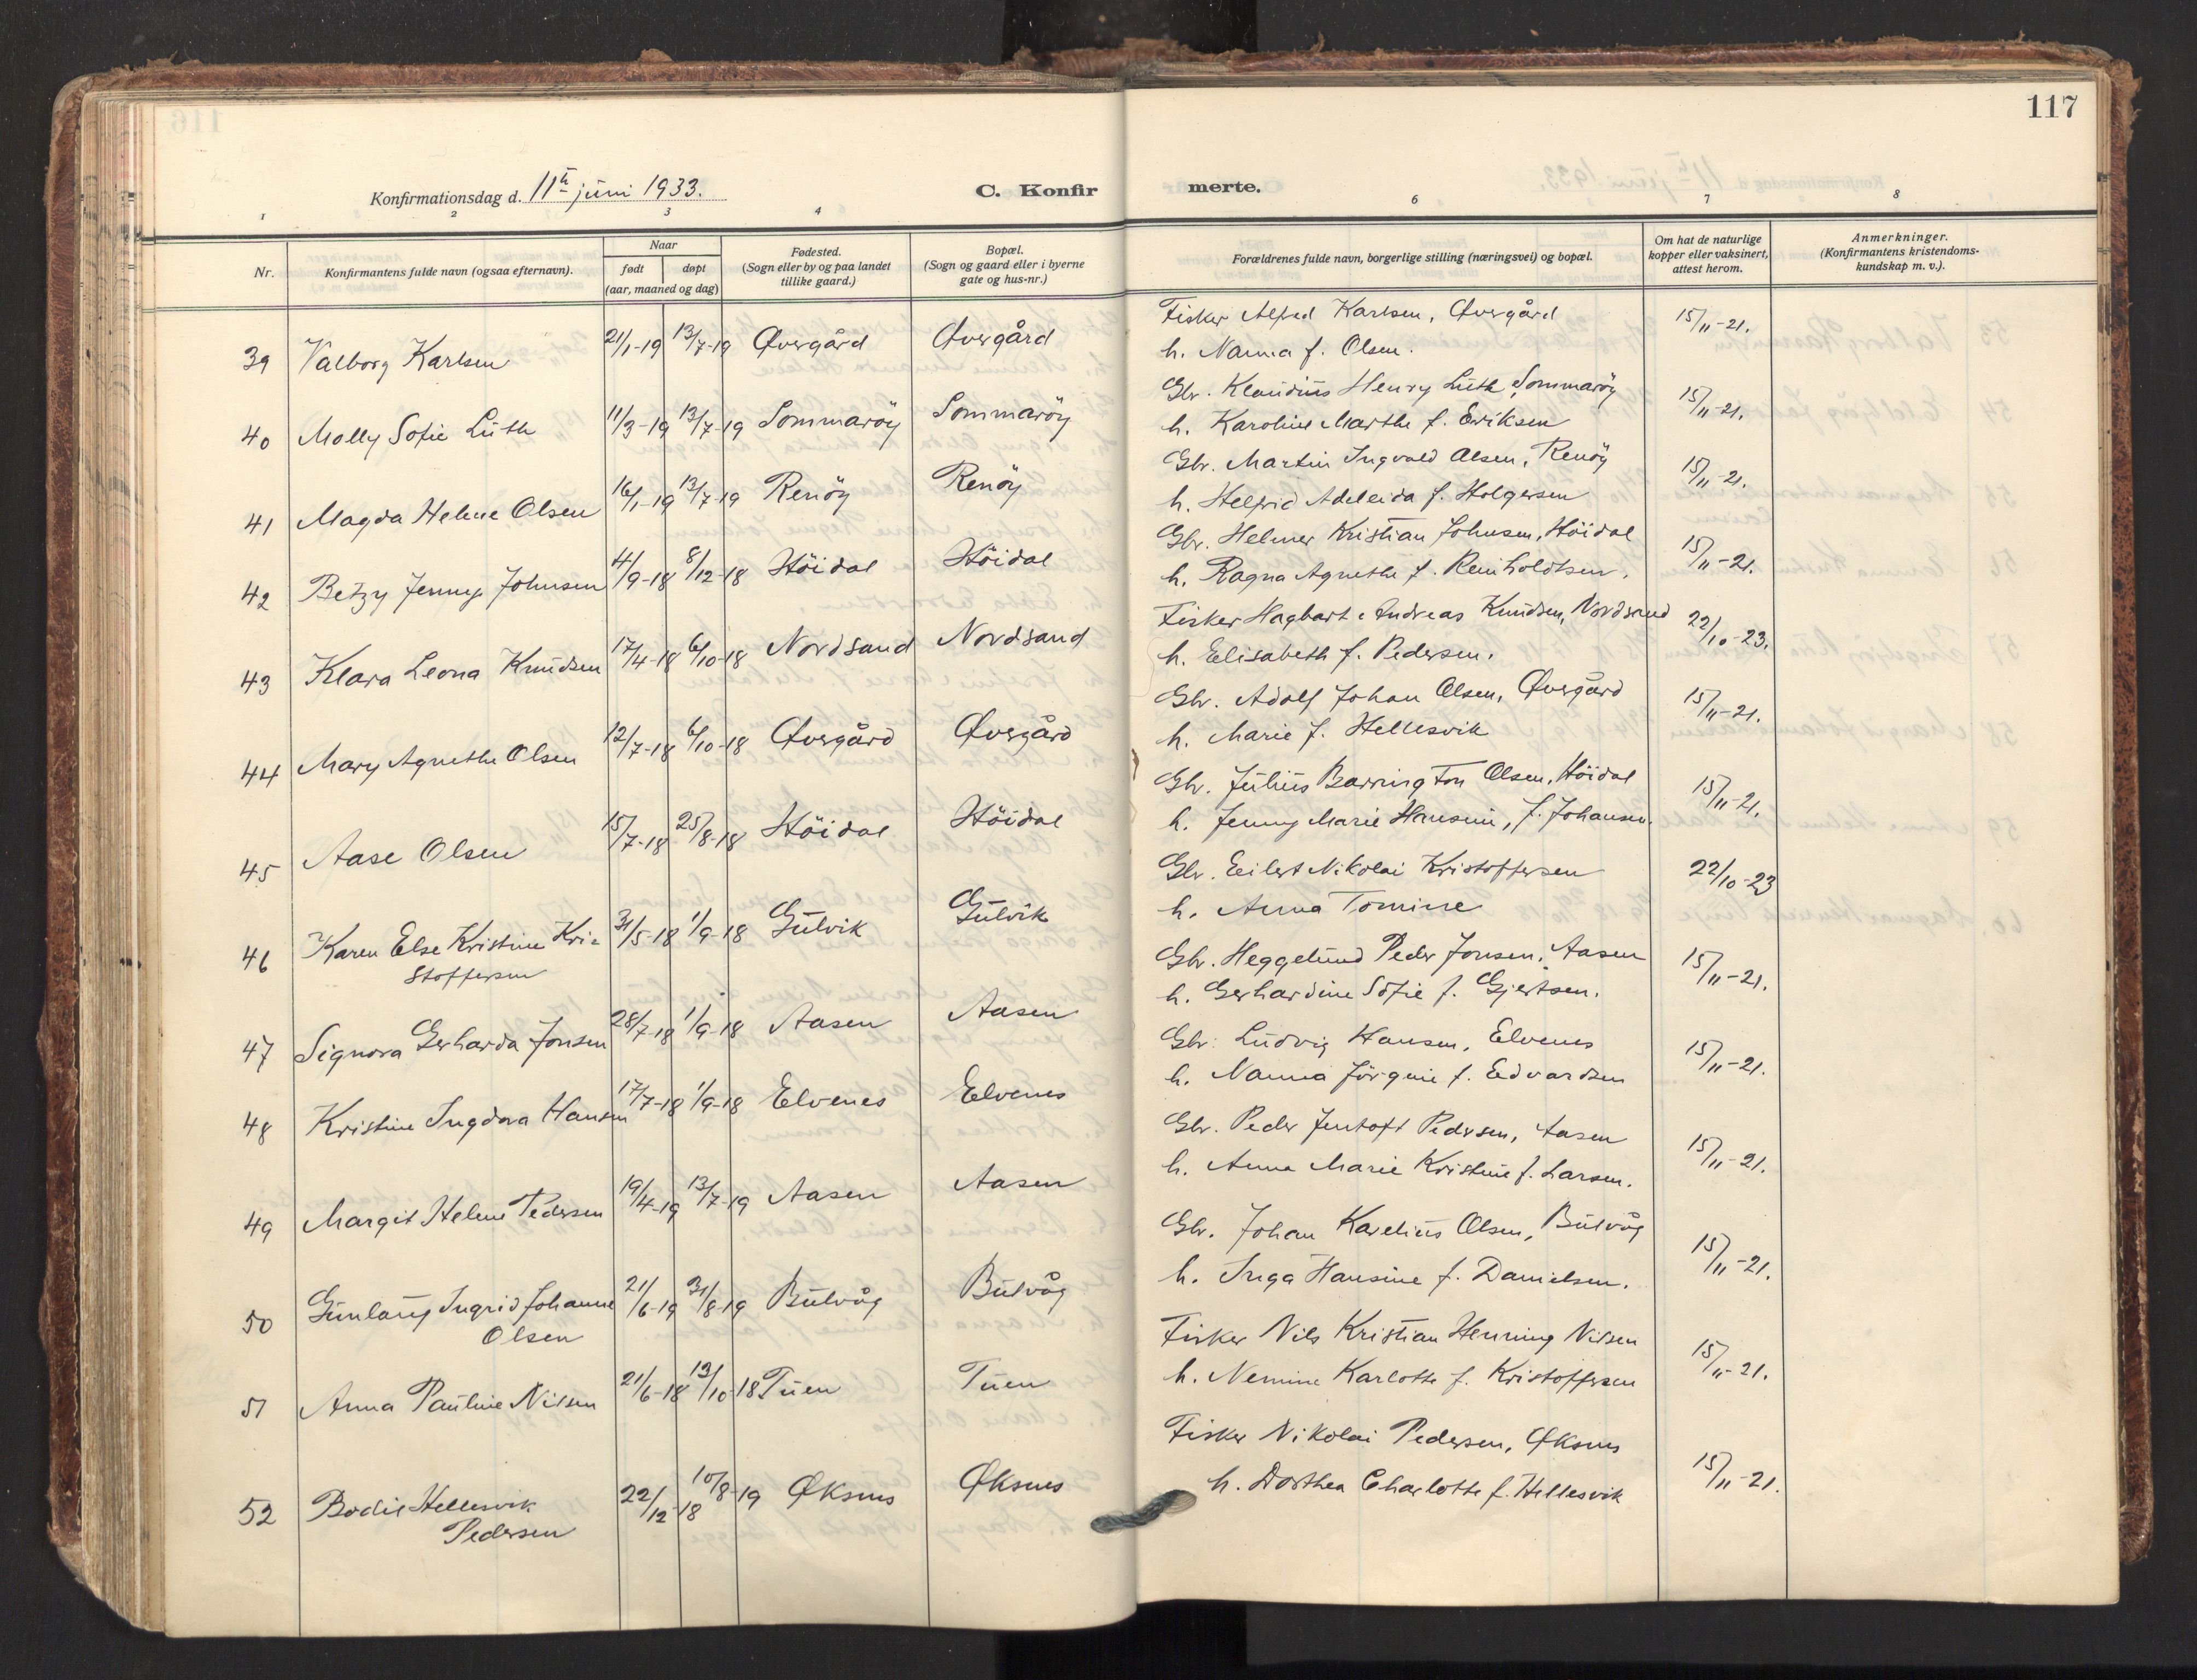 117
Konfirmationsdag d. 11te juni 1933.
C. Konfirmerte.
1 2 3 4 6 7 8
Nr.
Konfirmantens fulde navn (ogsaa efternavn).
Naar
født døpt
(aar, maaned og dag)
Fødested.
(Sogn eller by og paa landet
tillike gaard.)
Bopæl.
(Sogn og gaard eller i byerne
gate og hus-nr.)
Forældrenes fulde navn, borgerlige stilling (næringsvei) og bopæl.
Om hat de naturlige
kopper eller vaksinert,
attest herom.
Anmerkninger.
(Konfirmantens kristendoms-
kundskap m. v.).
39 Valborg Karlsen 21/1-19 13/7-19 Øvergård Øvergård
Fisker Alfred Karlsen, Øvergård 15/11-21.
h. Nanna f. Olsen.
40 Molly Sofie Lüth 11/3-19 13/7-19 Sommaröy Sommaröy
Gbr. Klaudius Henry Lüth, Sommaröy 15/11-21.
h. Karoline Marthe f. Eriksen
41 Magda Helene Olsen 16/1-19 13/7-19 Renöy Renöy
Gbr. Martin Ingvald Olsen, Renöy 15/11-21.
h. Helfrid Adeleida f. Holgersen
42 Betzy Jenny Johnsen 4/9-18 8/12-18 Höidal Höidal
Gbr. Helmer Kristian Johnsen, Höidal 15/11-21.
h. Ragna Agnethe f. Reinholdtsen.
43 Klara Leona Knudsen 17/4-18 6/10-18 Nordsand Nordsand
Fisker Hagbart Andreas Knudsen, Nordsand 22/10-23.
h. Elisabeth f. Pedersen.
44 Mary Agnethe Olsen 12/7-18 6/10-18 Øvergård Øvergård
Gbr. Adolf Johan Olsen, Øvergård 15/11-21.
h. Marie f. Hellesvik
45 Aase Olsen 15/7-18 25/8-18 Höidal Höidal
Gbr. Julius Barrington Olsen, Höidal 15/11-21.
h. Jenny Marie Hansine, f. Johansen.
46 Karen Else Kristine Kri-
stoffersen 31/5-18 1/9-18 Gulvik Gulvik
Gbr. Eilert Nikolai Kristoffersen 22/10-23
h. Anna Tomine
47 Signora Gerharda Jonsen 28/7-18 1/9-18 Aasen Aasen
Gbr. Heggelund Peder Jonsen, Aasen 15/11-21.
h. Gerhardine Sofie f. Gjertsen.
48 Kristine Ingdora Hansen 17/7-18 1/9-18 Elvenes Elvenes
Gbr. Ludvig Hansen, Elvenes 15/11-21.
h. Nanna Jörgine f. Edvardsen
49 Margit Helene Pedersen 19/4-19 13/7-19 Aasen Aasen
Gbr. Peder Jentoft Pedersen, Aasen 15/11-21.
h. Anna Marie Kristine f. Larsen.
50 Gunlaug Ingrid Johanne
Olsen 21/6-19 31/8-19 Bulvåg Bulvåg
Gbr. Johan Karelius Olsen, Bulvåg 15/11-21.
h. Inga Hansine f. Danielsen.
51 Anna Pauline Nilsen 21/6-18 13/10-18 Tuen Tuen
Fisker Nils Kristian Henning Nilsen 15/11-21.
h. Nemine Karlotte f. Kristoffersen
52 Bodil Hellesvik
Pedersen 22/12-18 10/8-19 Øksnes Øksnes
Fisker Nikolai Pedersen, Øksnes 15/11-21.
h. Dorthea Charlotte f. Hellesvik